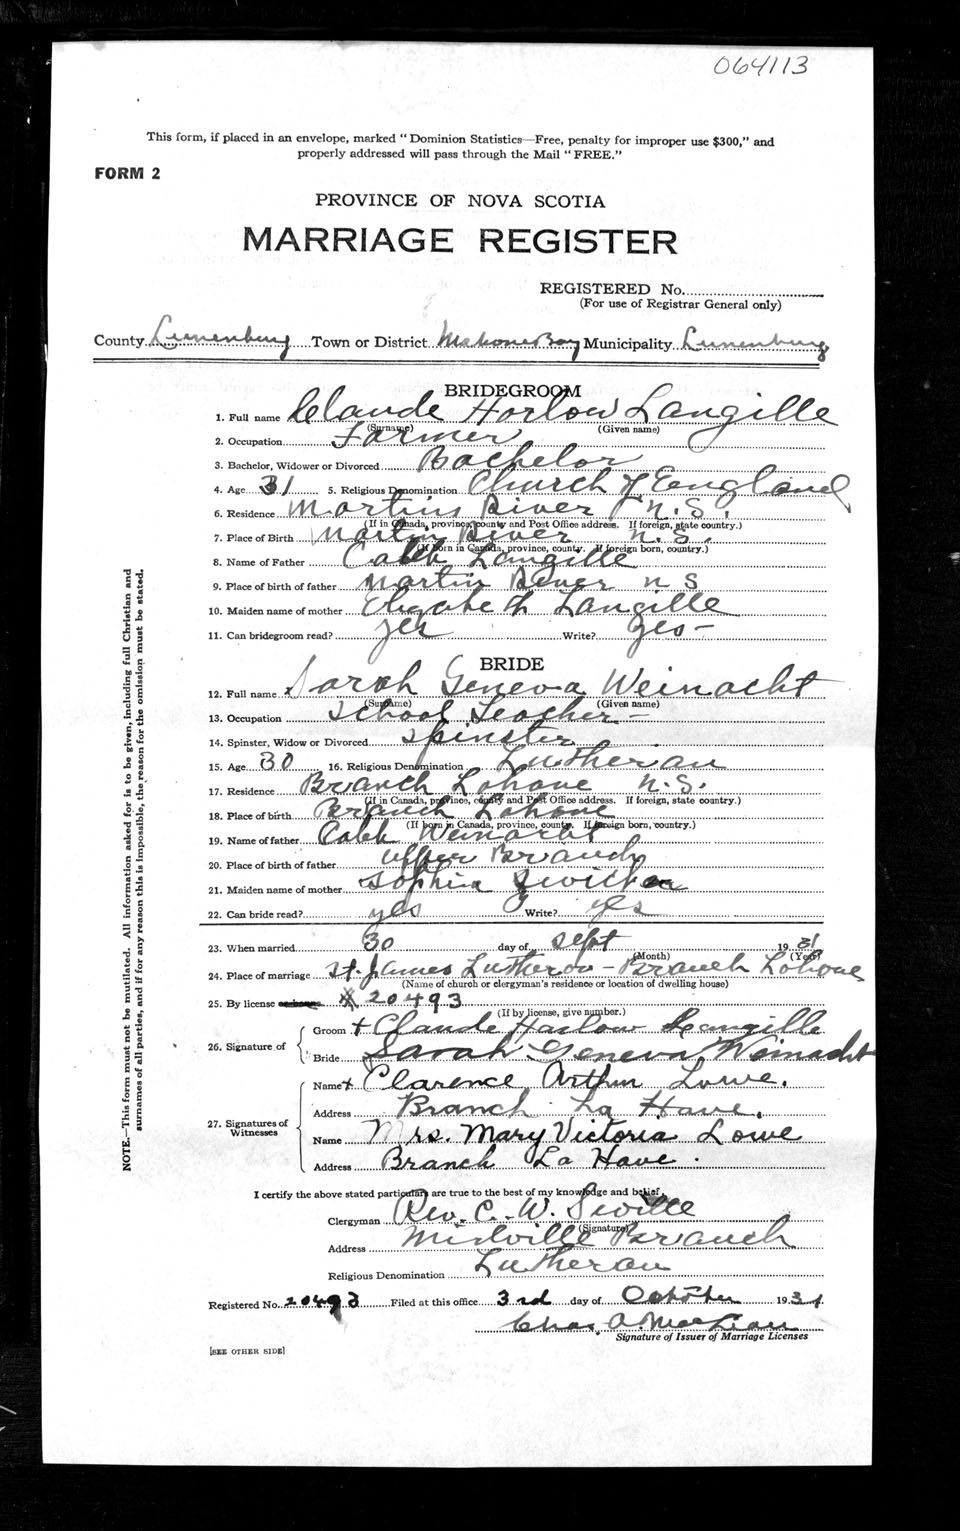 064113
This form, if placed in an envelope, marked "Dominion Statistics—Free, penalty for improper use $300," and
properly addressed will pass through the Mail "FREE."
FORM 2
PROVINCE OF NOVA SCOTIA
MARRIAGE REGISTER
REGISTERED No.
(For use of Registrar General only)
County Lunenburg Town or District Mahone Bay Municipality Lunenburg
BRIDEGROOM
1. Full name Claude Harlow Langille
(Surname) (Given name)
2. Occupation Farmer
3. Bachelor, Widower or Divorced Bachelor
4. Age 31 5. Religious Denomination Church of England
6. Residence Martins River N.S.
(If in Canada, province, county and Post Office address. If foreign, state country.)
7. Place of Birth Martin River N.S.
(If born in Canada, province, county. If foreign born, country.)
8. Name of Father Caleb Langille
9. Place of birth of father Martin River N S
10. Maiden name of mother Elizabeth Langille
11. Can bridegroom read? yes Write? yes —
BRIDE
12. Full name Sarah Geneva Weinacht
(Surname) (Given name)
13. Occupation School Teacher —
14. Spinster, Widow or Divorced Spinster
15. Age 30 16. Religious Denomination Lutheran
17. Residence Branch Lahave N.S.
(If in Canada, province, county and Post Office address. If foreign, state country.)
18. Place of birth Branch Lahave
(If born in Canada, province, county. If foreign born, country.)
19. Name of father Caleb Weinacht
20. Place of birth of father Upper Branch
21. Maiden name of mother Sophia
22. Can bride read? yes Write? yes
23. When married 30 day of Sept 1931
(Month) (Year)
24. Place of marriage St. James Lutheran – Branch Lahave
(Name of church or clergyman's residence or location of dwelling house)
25. By license # 20493
(If by license, give number.)
26. Signature of
Groom + Claude Harlow Langille
Bride Sarah Geneva Weinacht
27. Signatures of Witnesses
Name + Clarence Arthur Lowe.
Address Branch La Have.
Name Mrs. Mary Victoria Lowe
Address Branch La Have.
I certify the above stated particulars are true to the best of my knowledge and belief.
Clergyman Rev. C. W. Seville
(Signature)
Address Midville Branch
Religious Denomination Lutheran
Registered No. 20493 Filed at this office 3rd day of October 1931
Chas. A. MacLean
Signature of Issuer of Marriage Licenses
[SEE OTHER SIDE]
NOTE.—This form must not be mutilated. All information asked for is to be given, including full Christian and
surnames of all parties, and if for any reason this is impossible, the reason for the omission must be stated.